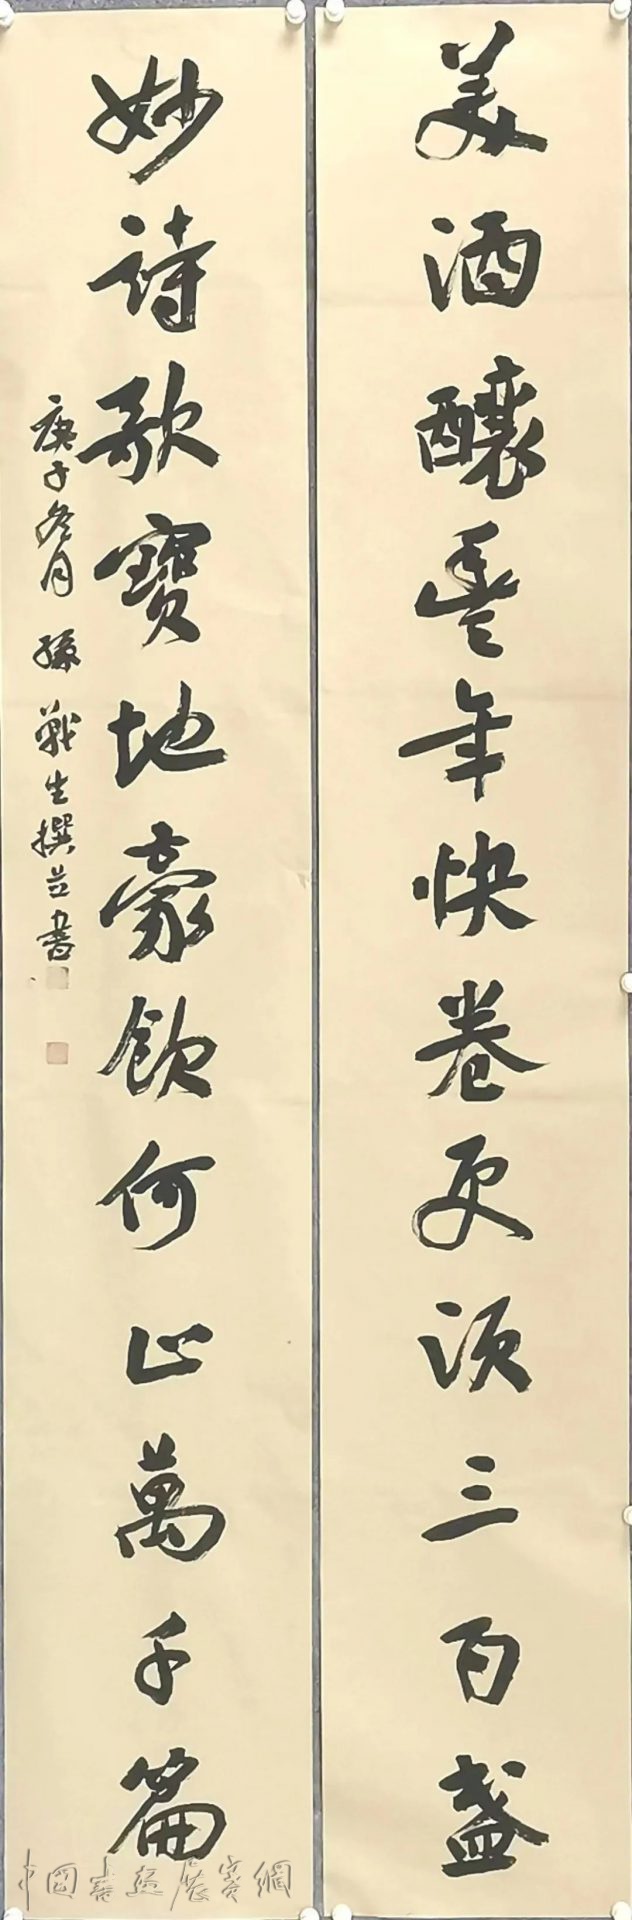 美酒釀豐年快卷更須三百盞
妙詩歌寶地豪飲何止萬千篇
庚子冬月 孫戰生撰並書
中國書畫展賽網